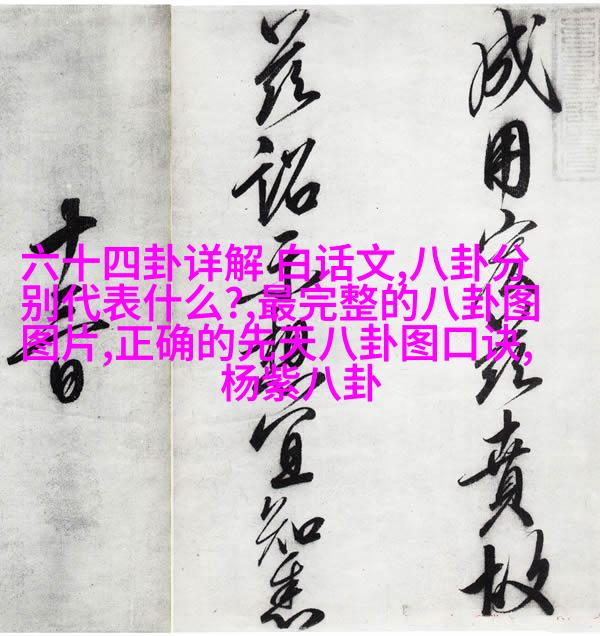 六十四卦详解 白话文,八卦分
别代表什么?,最完整的八卦图
图片,正确的先天八卦图口诀,
杨紫八卦
成用兹賁故
兹詔示想宜知悉
日